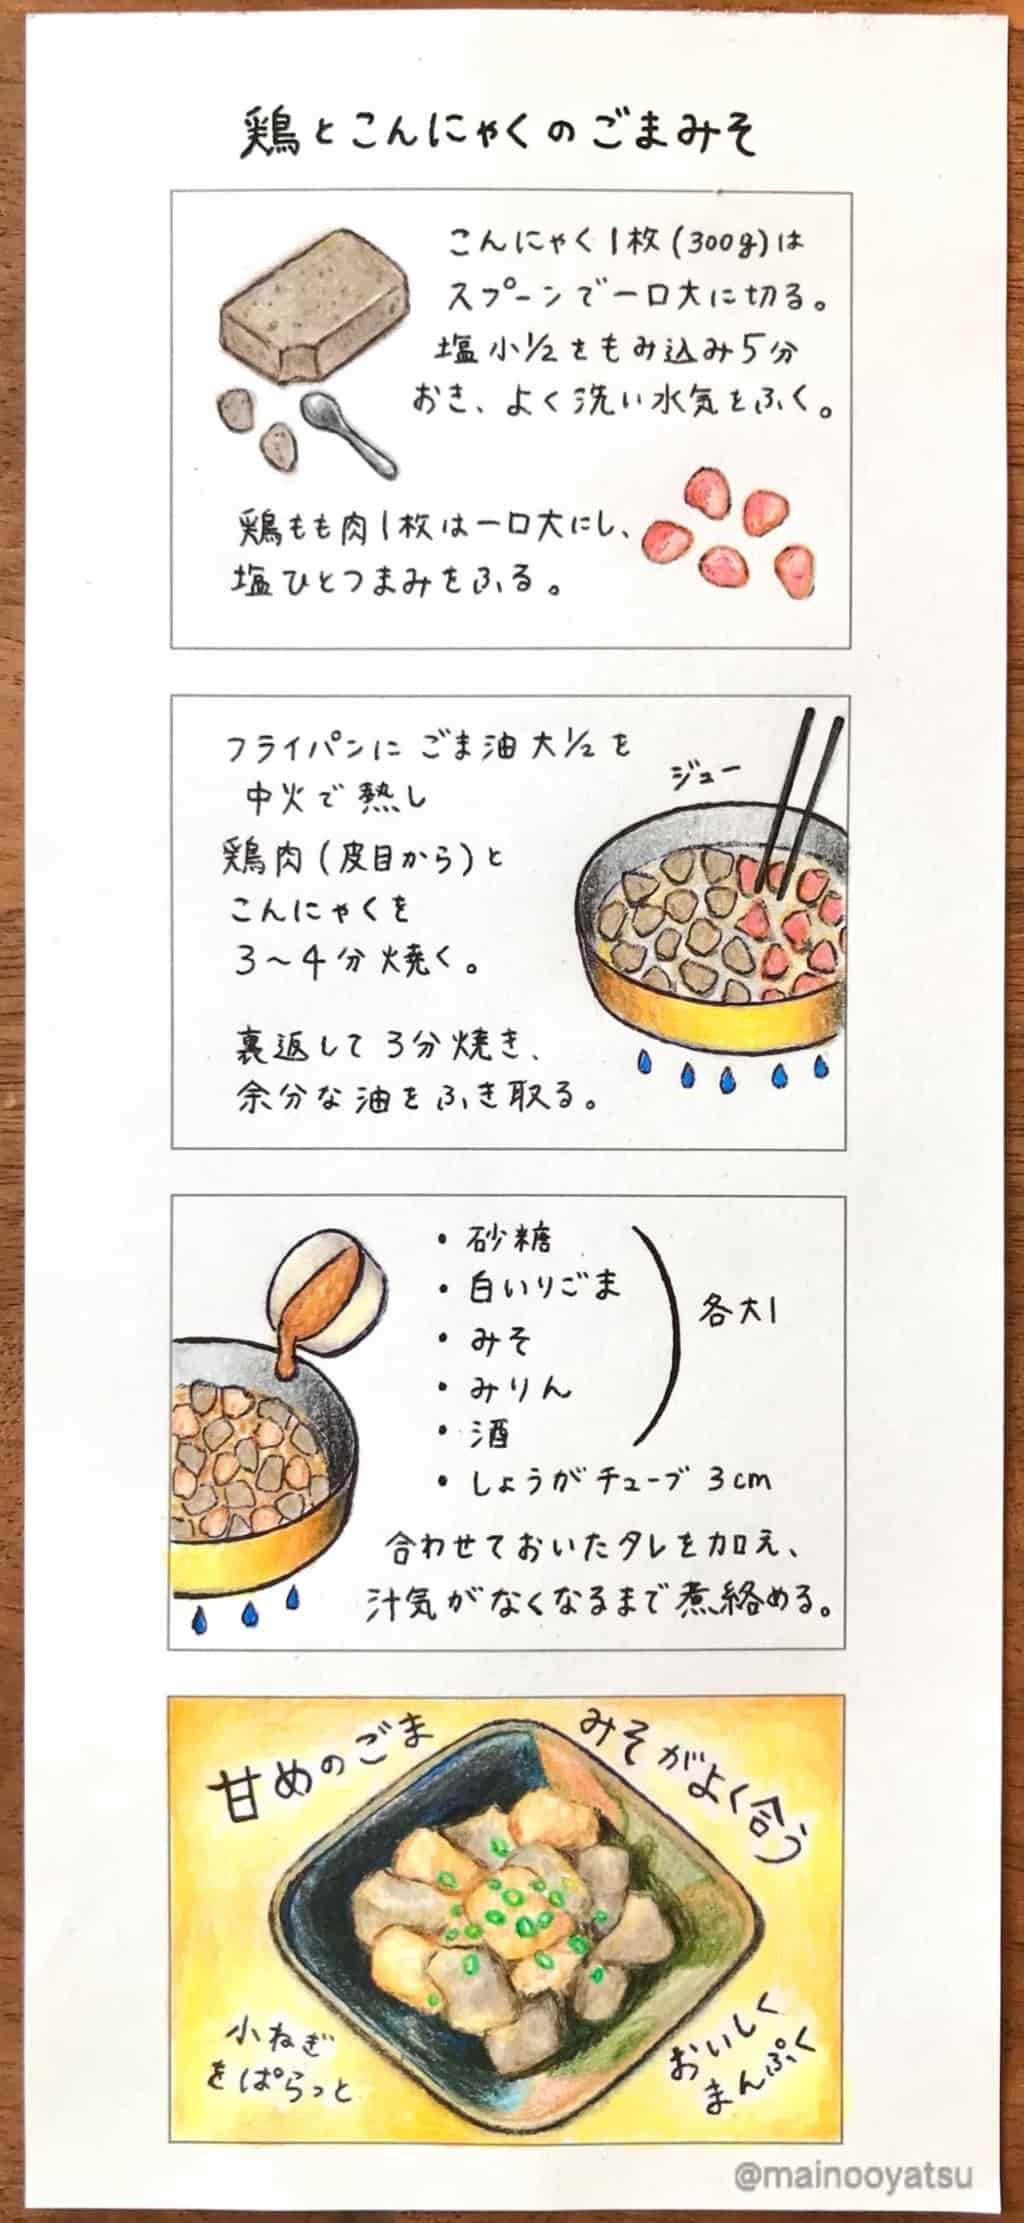 鶏とこんにゃくのごまみそ
こんにゃく1枚(300g)は
スプーンで一口大に切る。
塩小1/2をもみ込み5分
おき、よく洗い水気をふく。
鶏もも肉1枚は一口大にし、
塩ひとつまみをふる。
フライパンにごま油大1/2を
中火で熱し
鶏肉(皮目から)と
こんにゃくを
3〜4分焼く。
裏返して3分焼き、
余分な油をふき取る。
ジュー
・砂糖
・白いりごま
・みそ
・みりん
・酒
各大1
・しょうがチューブ 3cm
合わせておいたタレを加え、
汁気がなくなるまで煮絡める。
甘めのごま
みそがよく合う
小ねぎ
をぱらっと
おいしく
まんぷく
@mainooyatsu